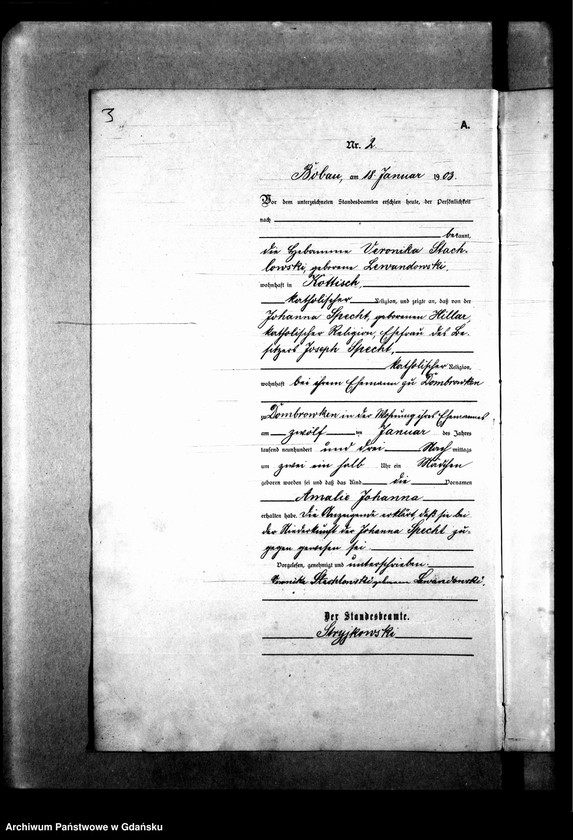 3
A.
Nr. 2
Bobau, am 18 Januar 1903.
Vor dem unterzeichneten Standesbeamten erschien heute, der Persönlichkeit
nach
bekannt,
die Hebamme Veronika Stach-
lowski, geborene Lewandowski,
wohnhaft in Kottisch,
katholischer Religion, und zeigte an, daß von der
Johanna Specht, geborenen Hellar,
katholischer Religion, Ehefrau des Be-
sitzers Joseph Specht,
katholischer Religion,
wohnhaft bei ihrem Ehemann zu Dombrowken
zu Dombrowken in der Wohnung ihres Ehemannes
am zwölften Januar des Jahres
tausend neunhundert und drei Nach mittags
um zwei ein halb Uhr ein Mädchen
geboren worden sei und daß das Kind die Vornamen
Amalie Johanna
erhalten habe. Die Anzeigende erklärt, daß sie bei
der Niederkunft der Johanna Specht zu-
gegen gewesen sei
Vorgelesen, genehmigt und unterschrieben.
Veronika Stachlowski geborene Lewandowski.
Der Standesbeamte.
Stryjkowski
Archiwum Państwowe w Gdańsku